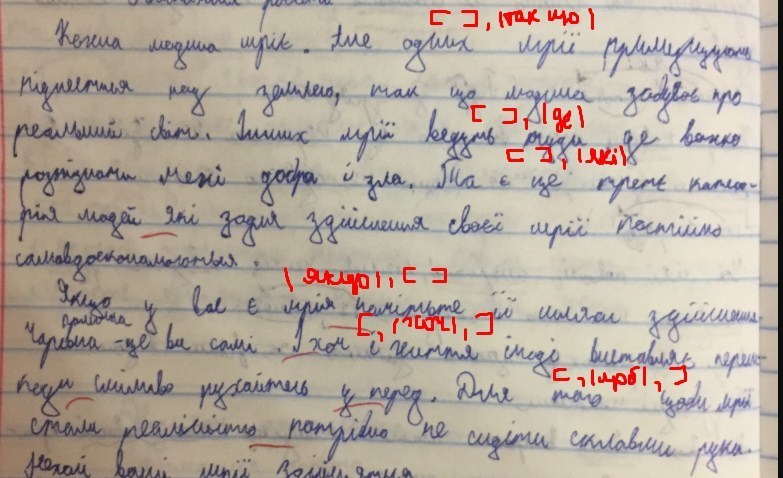 [ ], (так що)
Кожна людина мріє. Але одних мрії примушують
піднестися над землею, так що людина забуває про
[ ], (де)
реальний світ. Інших мрії ведуть туди де важко
[ ], (які)
розпізнати межі добра й зла. Та є ще третє катего-
рія людей які задля здійснення своєї мрії постійно
самовдосконалюються.
(якщо), [ ]
Якщо у вас є мрія намітьте її шляхи здійснення.
Чарівна паличка - це ви самі. І хоч і життя іноді виставляє переш-
[, (хоч), ]
коди сміливо рухайтесь у перед. Для того щоби мрії
[, (щоб), ]
стали реальністю потрібно не сидіти склавши руки.
Нехай ваші мрії здійсняться